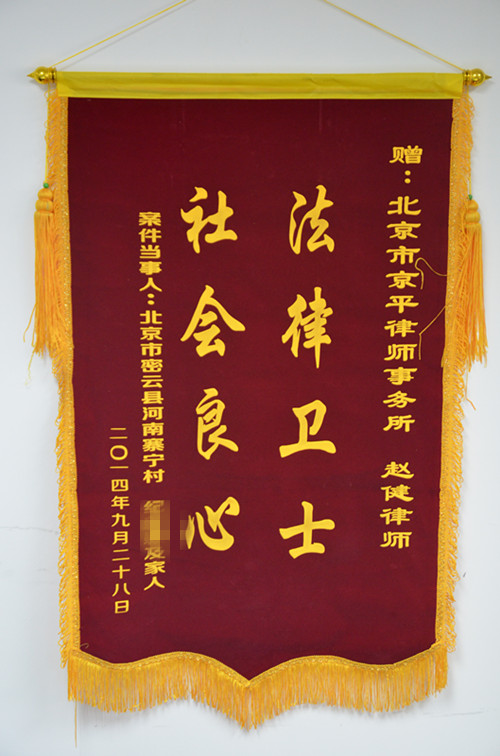 赠：北京市京平律师事务所 赵健律师
法律卫士
社会良心
案件当事人：北京市密云县河南寨宁村 及家人
二〇一四年九月二十八日